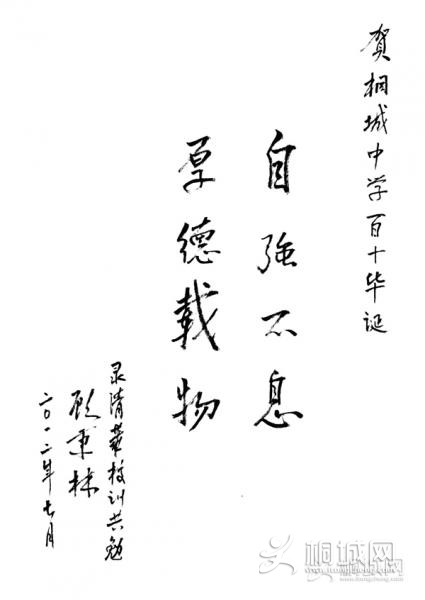 贺桐城中学百十华诞
自强不息
厚德载物
录清华校训共勉
顾秉林
二〇一二年七月
桐城网